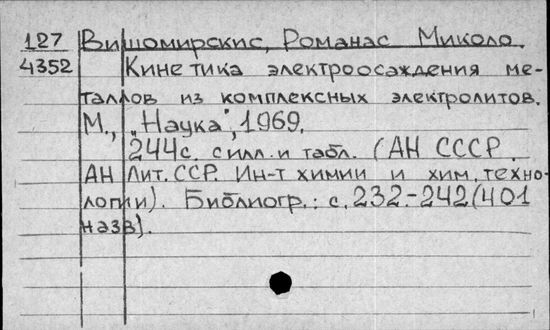 127 Вишомирскис, Романас Миколо.
4352 Кинетика электроосаждения ме-
таллов из комплексных электролитов.
М., „Наука", 1969.
244с. с илл. и табл. (АН СССР.
АН Лит.ССР. Ин-т химии и хим. техно-
логии). Библиогр.: с. 232-242 (401
назв).